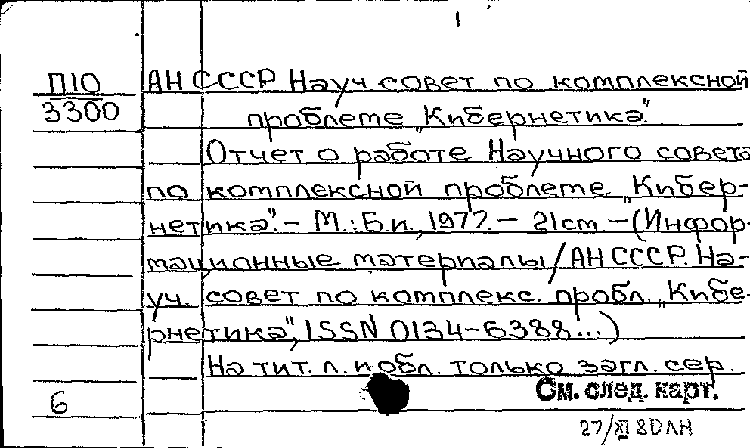 1
П10 АН СССР. Науч. совет по комплексной
3300 проблеме „Кибернетика"
Отчет о работе Научного совета
по комплексной проблеме „Кибер-
нетика". – М.: Б.и., 1977. – 21 cm – (Инфор-
мационные материалы / АН СССР. На-
уч. совет по комплекс. пробл. „Кибе-
рнетика", ISSN 0134-6388...)
На тит. л. и обл. только загл. сер.
6 См. след. карт.
27/XI 8